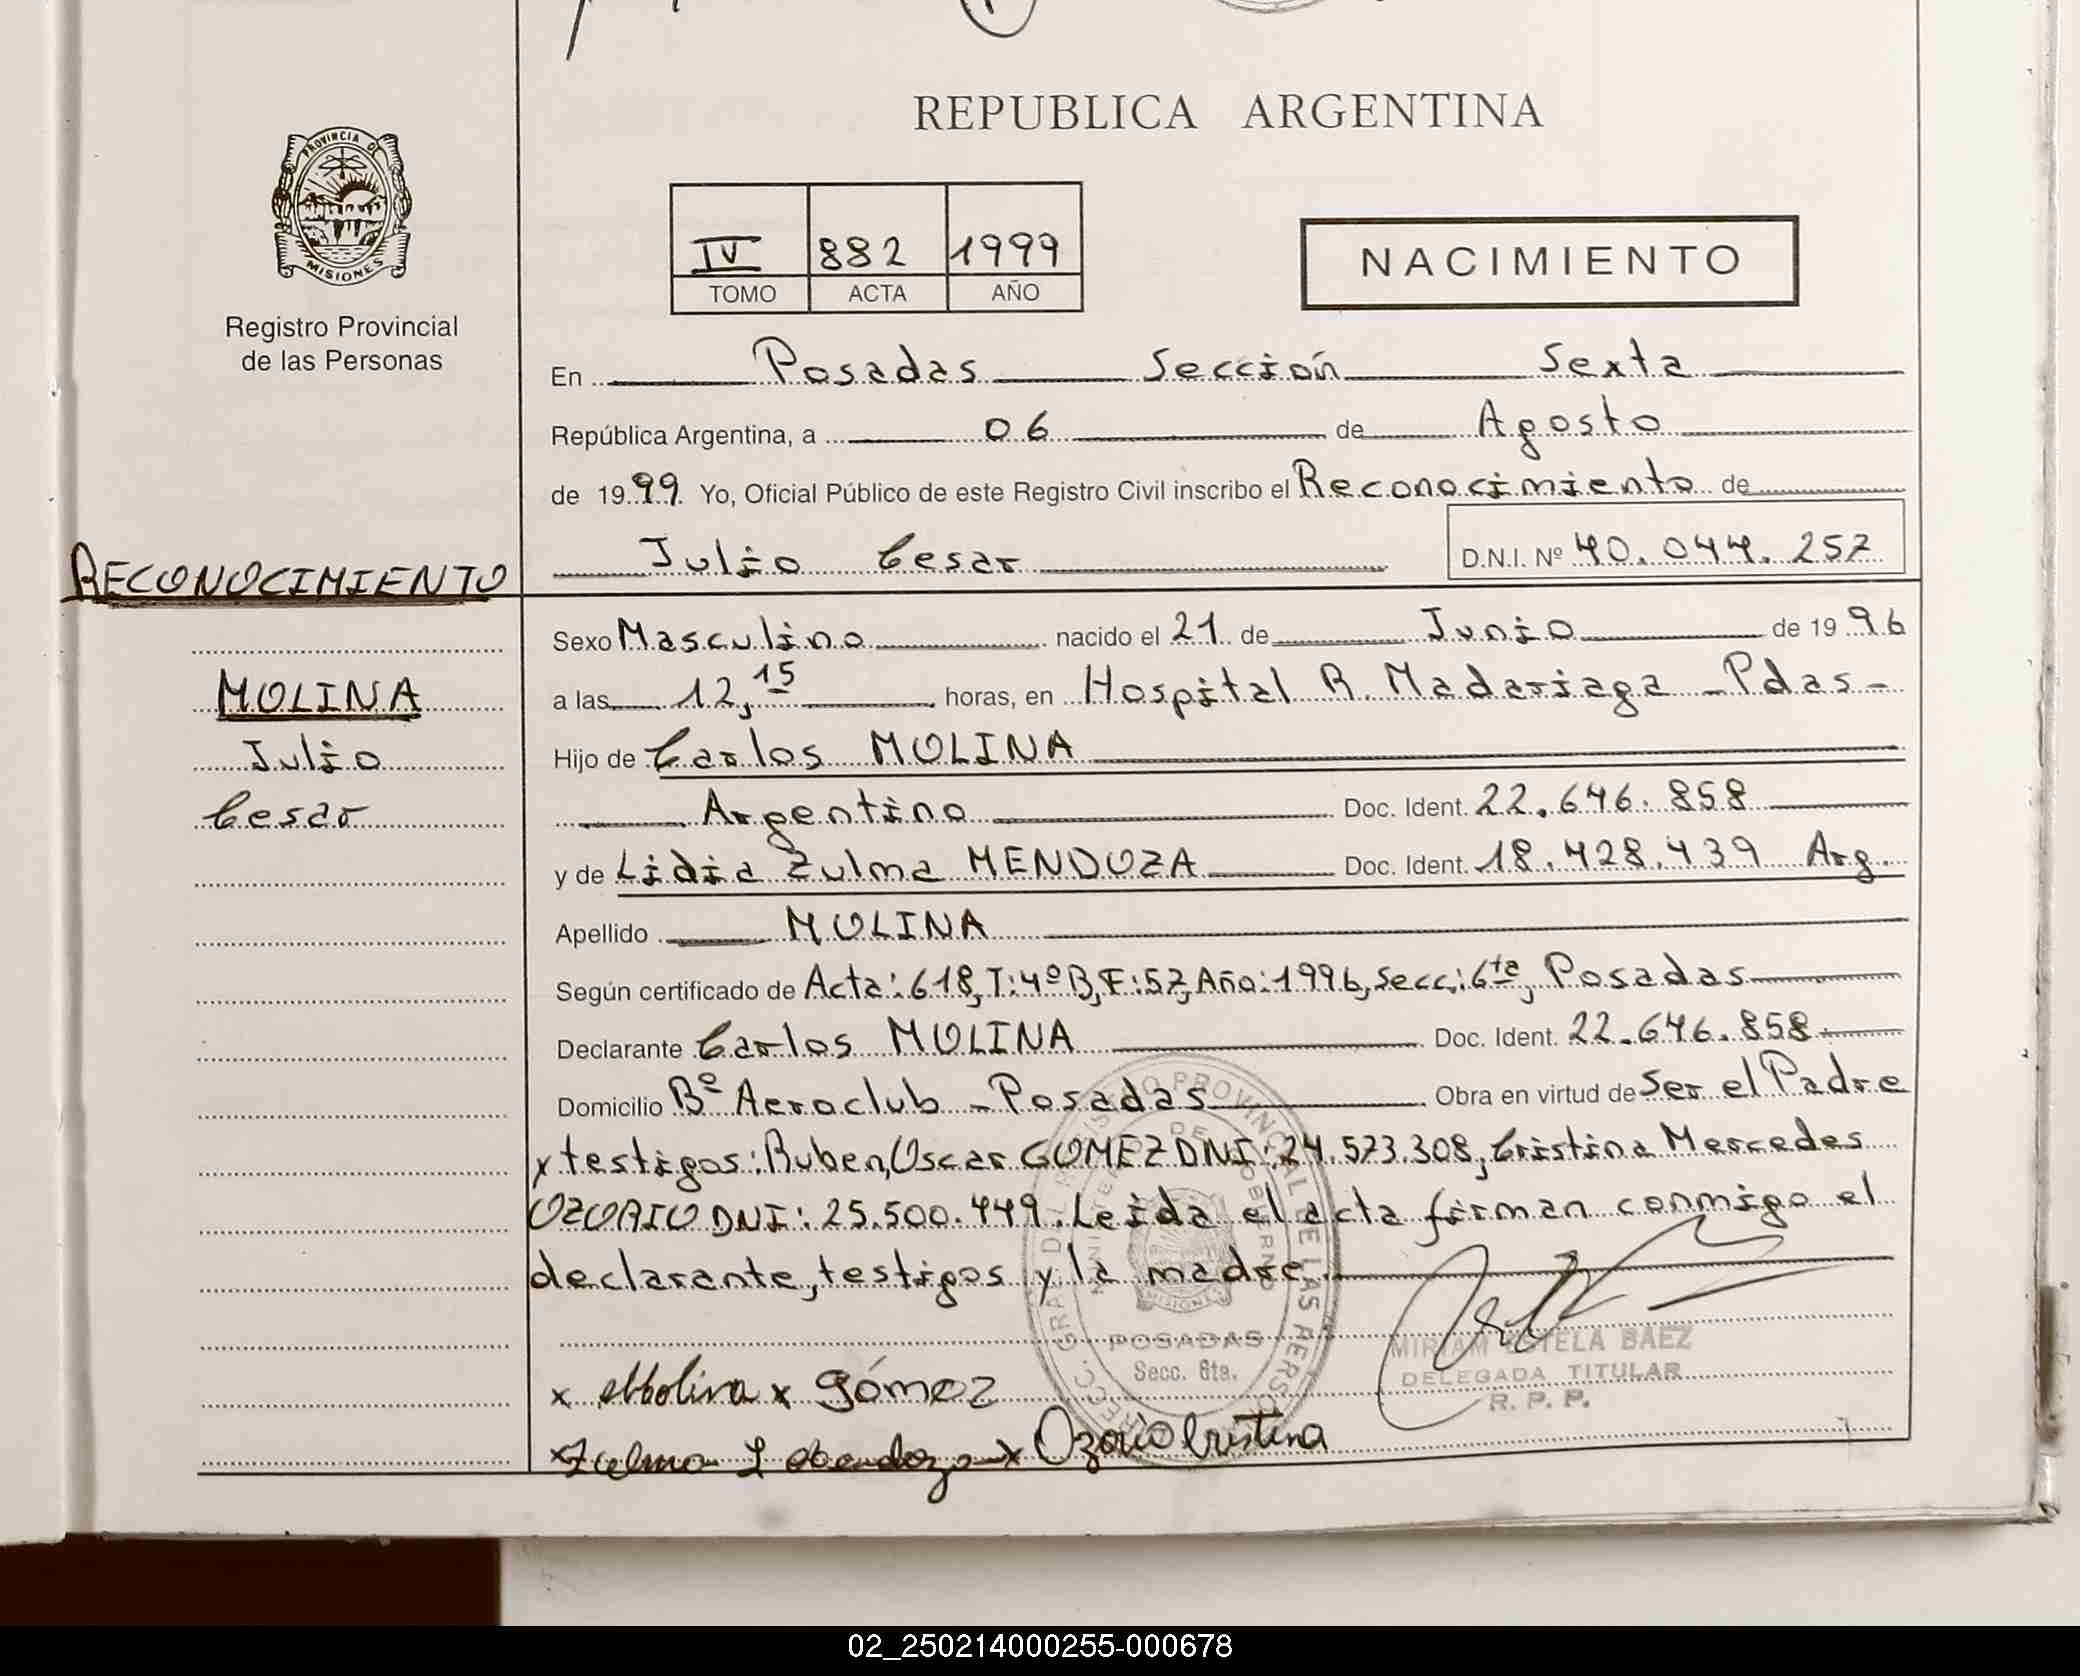 REPUBLICA ARGENTINA
PROVINCIA DE
MISIONES
Registro Provincial
de las Personas
IV 882 1999
TOMO ACTA AÑO
NACIMIENTO
En Posadas Sección Sexta
República Argentina, a 06 de Agosto
de 1999 Yo, Oficial Público de este Registro Civil inscribo el Reconocimiento de
Julio Cesar D.N.I. Nº 40.044.257
RECONOCIMIENTO
MOLINA
Julio
Cesar
Sexo Masculino nacido el 21 de Junio de 1996
a las 12,15 horas, en Hospital R. Madariaga - Pdas -
Hijo de Carlos MOLINA
Argentino Doc. Ident. 22.646.858
y de Lidia Zulma MENDOZA Doc. Ident. 18.428.439 Arg.
Apellido MOLINA
Según certificado de Acta: 618, T: 4º B, F: 57, Año: 1996, Secc: 6ta, Posadas
Declarante Carlos MOLINA Doc. Ident. 22.646.858
Domicilio Bº Aeroclub - Posadas Obra en virtud de Ser el Padre
x testigos: Ruben, Oscar GOMEZ DNI: 24.573.308, Cristina Mercedes
OZORIO DNI: 25.500.449. Leida el acta firman conmigo el
declarante, testigos y la madre.
POSADAS
Secc. 6ta.
MIRIAM ESTELA BAEZ
DELEGADA TITULAR
R. P. P.
x Molina x Gómez
x Zulma L Mendoza x Ozorio Cristina
02_250214000255-000678